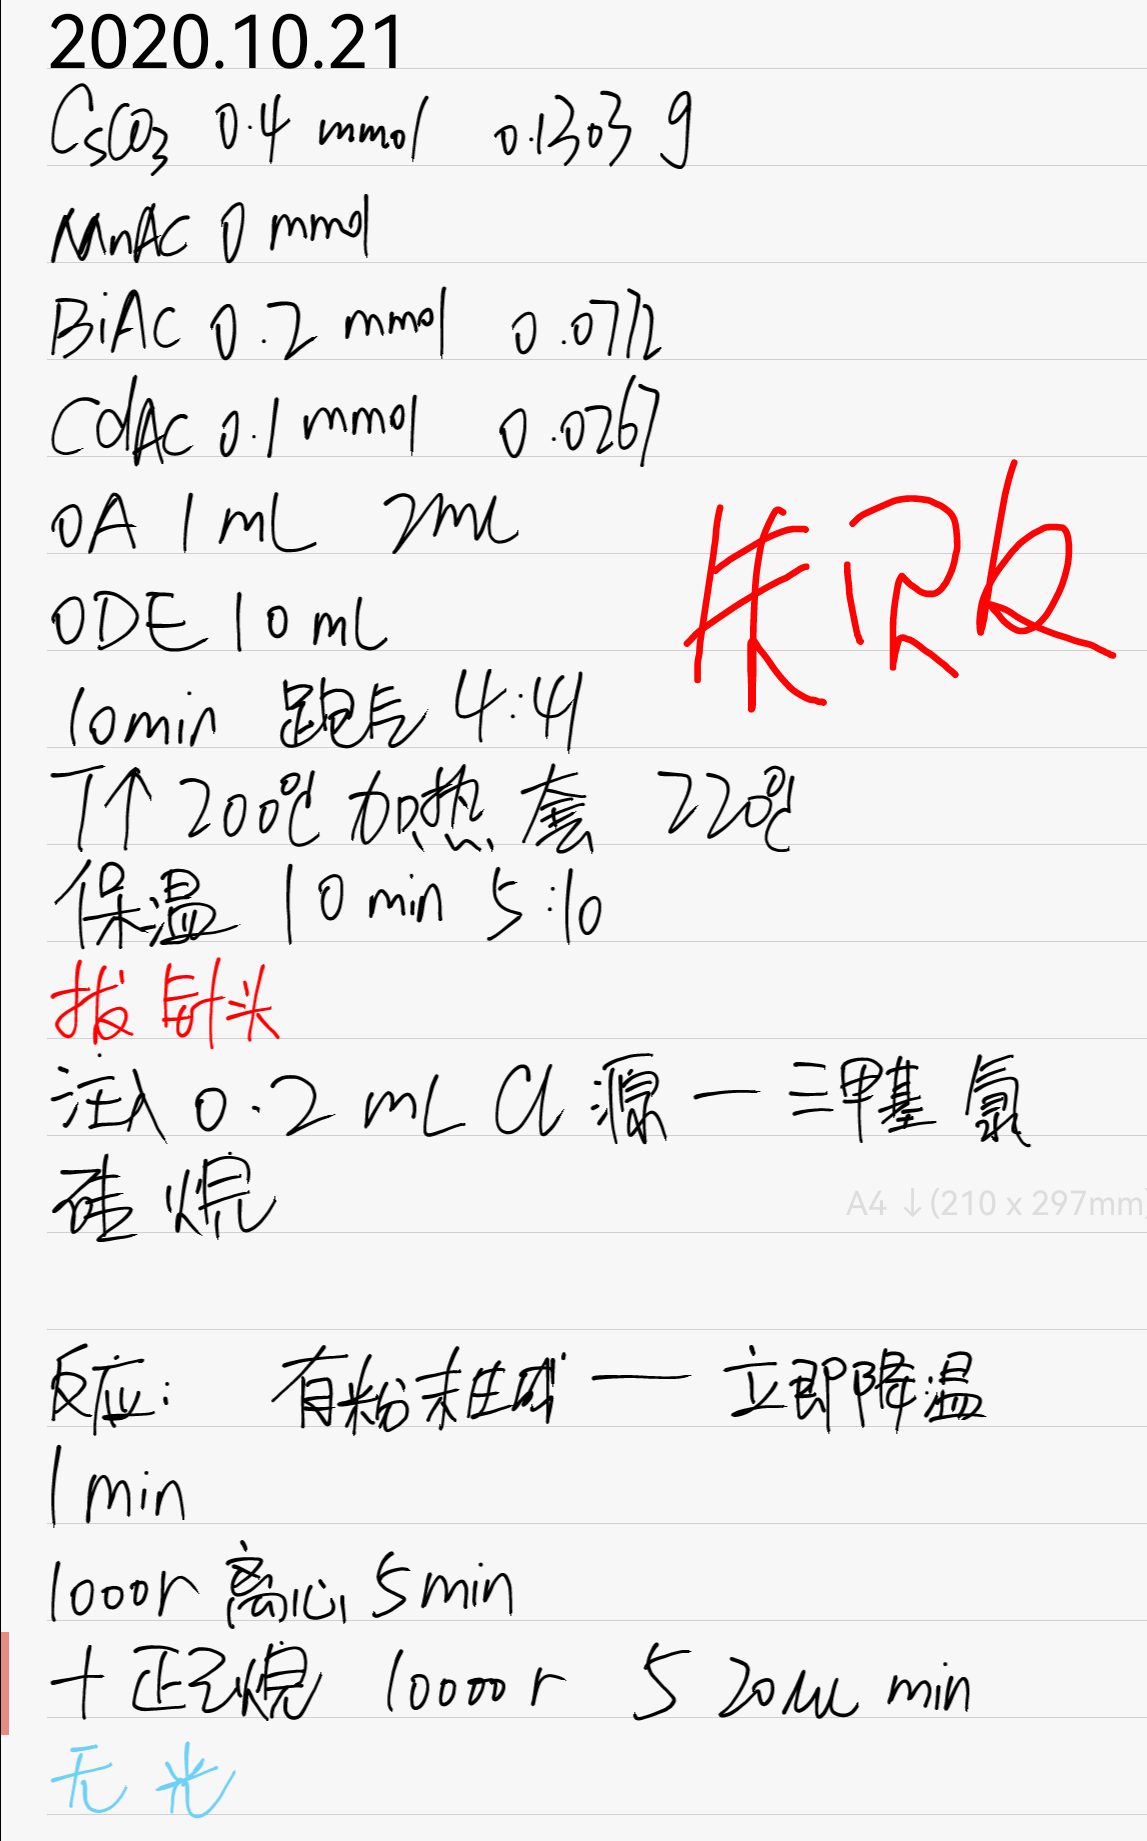 2020.10.21
CsCO3 0.4 mmol 0.1303 g
MnAC 0 mmol
BiAC 0.2 mmol 0.0772
CdAC 0.1 mmol 0.0267
OA 1 mL 2mL
失败
ODE 10 mL
10min 跑气 4:41
T↑ 200℃ 加热套 220℃
保温 10 min 5:10
拔针头
注入 0.2 mL Cl 源 — 三甲基氯
硅烷
A4 ↓(210 x 297mm)
反应: 有粉末生成 — 立即降温
1 min
1000r 离心 5min
+ 正己烷 10000 r 5 min
无光